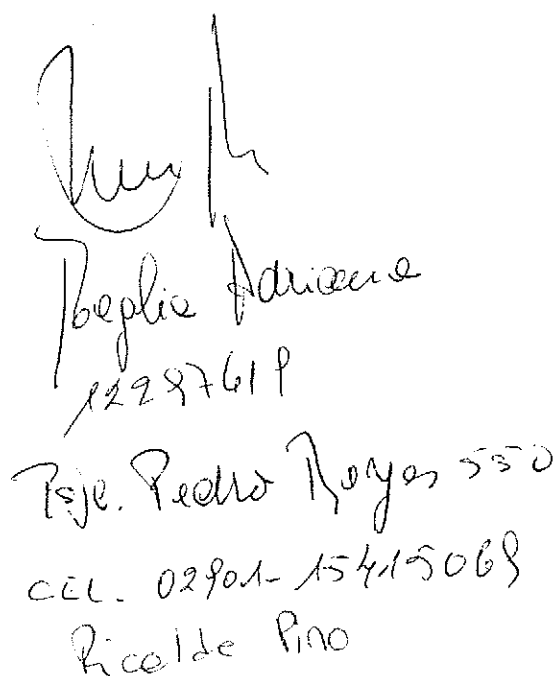 Baglia Adriana
12297619
Psje. Pedro Reyes 550
CEL. 02901-15415069
Ricalde Pino